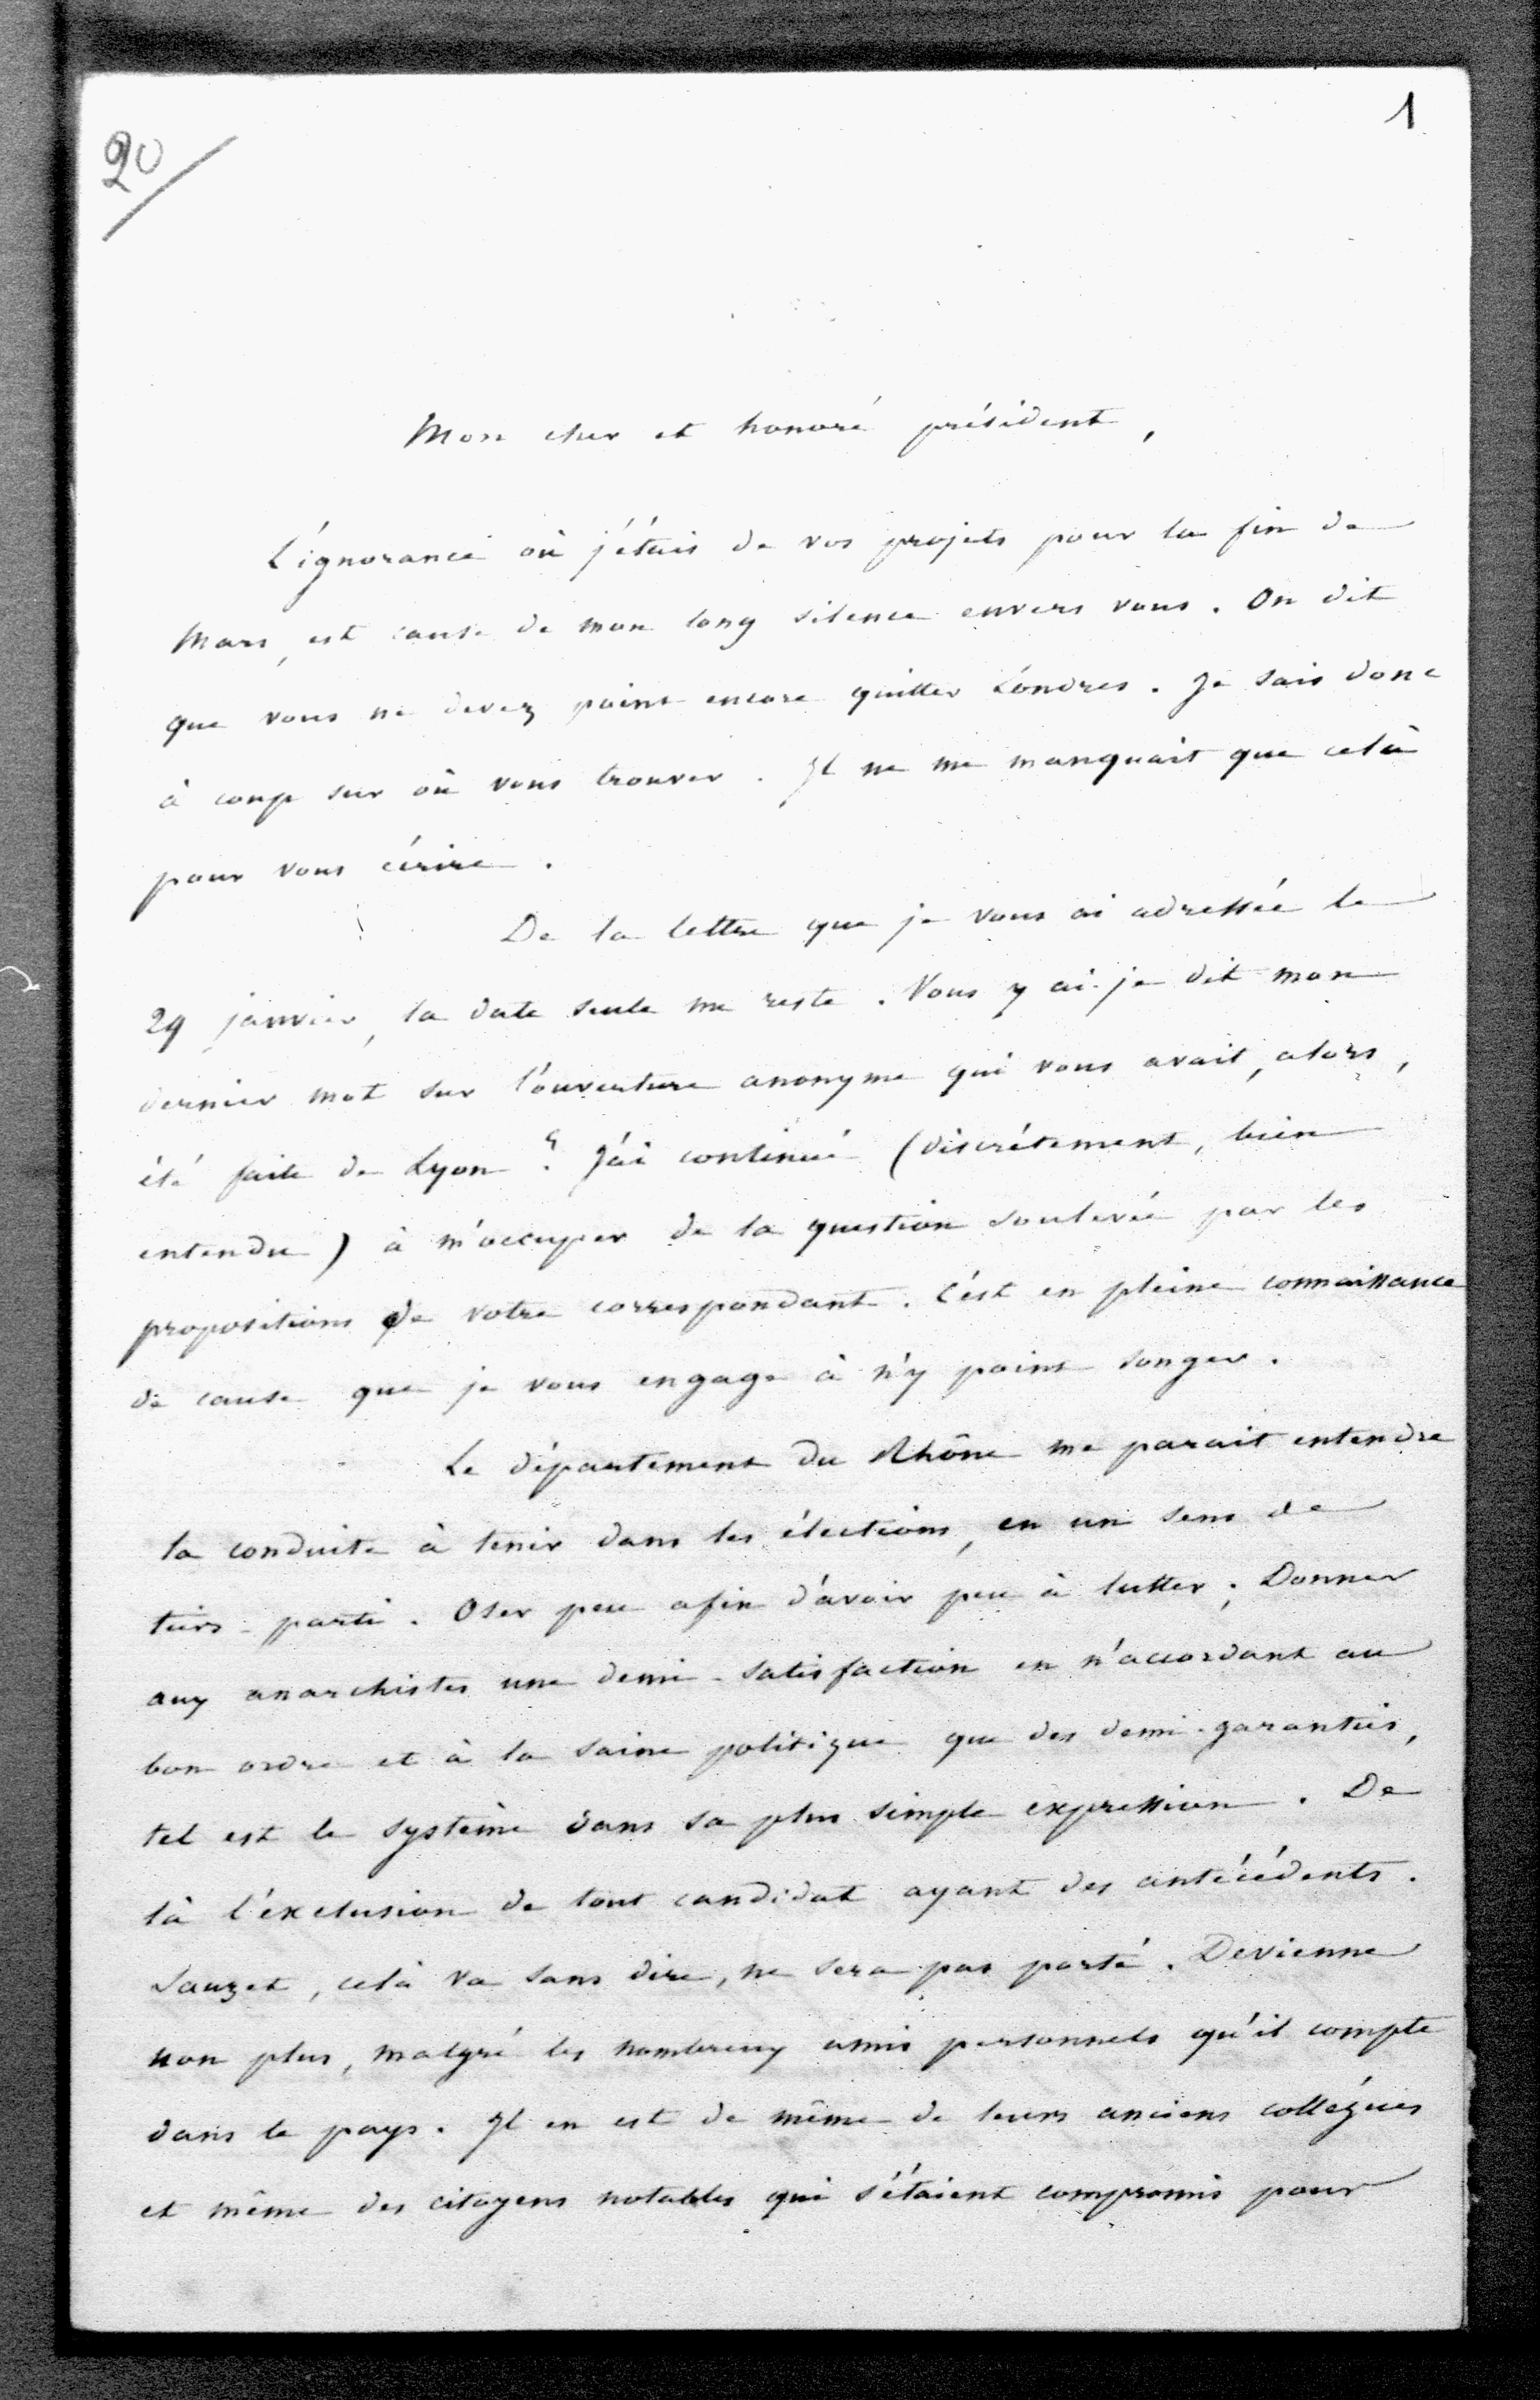 1
20
Mon cher et honoré président,
L'ignorance où j'étais de vos projets pour la fin de
Mars, est cause de mon long silence envers vous. On dit
que vous ne devez point encore quitter Londres. Je sais donc
à coup sur où vous trouver. Il ne me manquait que celà
pour vous écrire.
De la lettre que je vous ai adressée le
29 janvier, la date seule me reste. Vous y ai-je dit mon
dernier mot sur l'ouverture anonyme qui vous avait, alors,
été faite de Lyon ? J'ai continué (discrétement, bien
entendu) à m'occuper de la question soulevée par les
propositions de votre correspondant. C'est en pleine connaissance
de cause que je vous engage à n'y point songer.
Le département du Rhône me parait entendre
la conduite à tenir dans les élections, en un sens de
tiers-parti. Oser peu afin d'avoir peu à lutter; Donner
aux anarchistes une demi-satisfaction en n'accordant au
bon ordre et à la saine politique que des demi-garanties,
tel est le système dans sa plus simple expression. De
là l'exclusion de tout candidat ayant des antécédents.
Sauzet, celà va sans dire, ne sera pas porté. Devienne
non plus, malgré les nombreux amis personnels qu'il compte
dans le pays. Il en est de même de leurs anciens collégues
et même des citoyens notables qui s'étaient compromis pour